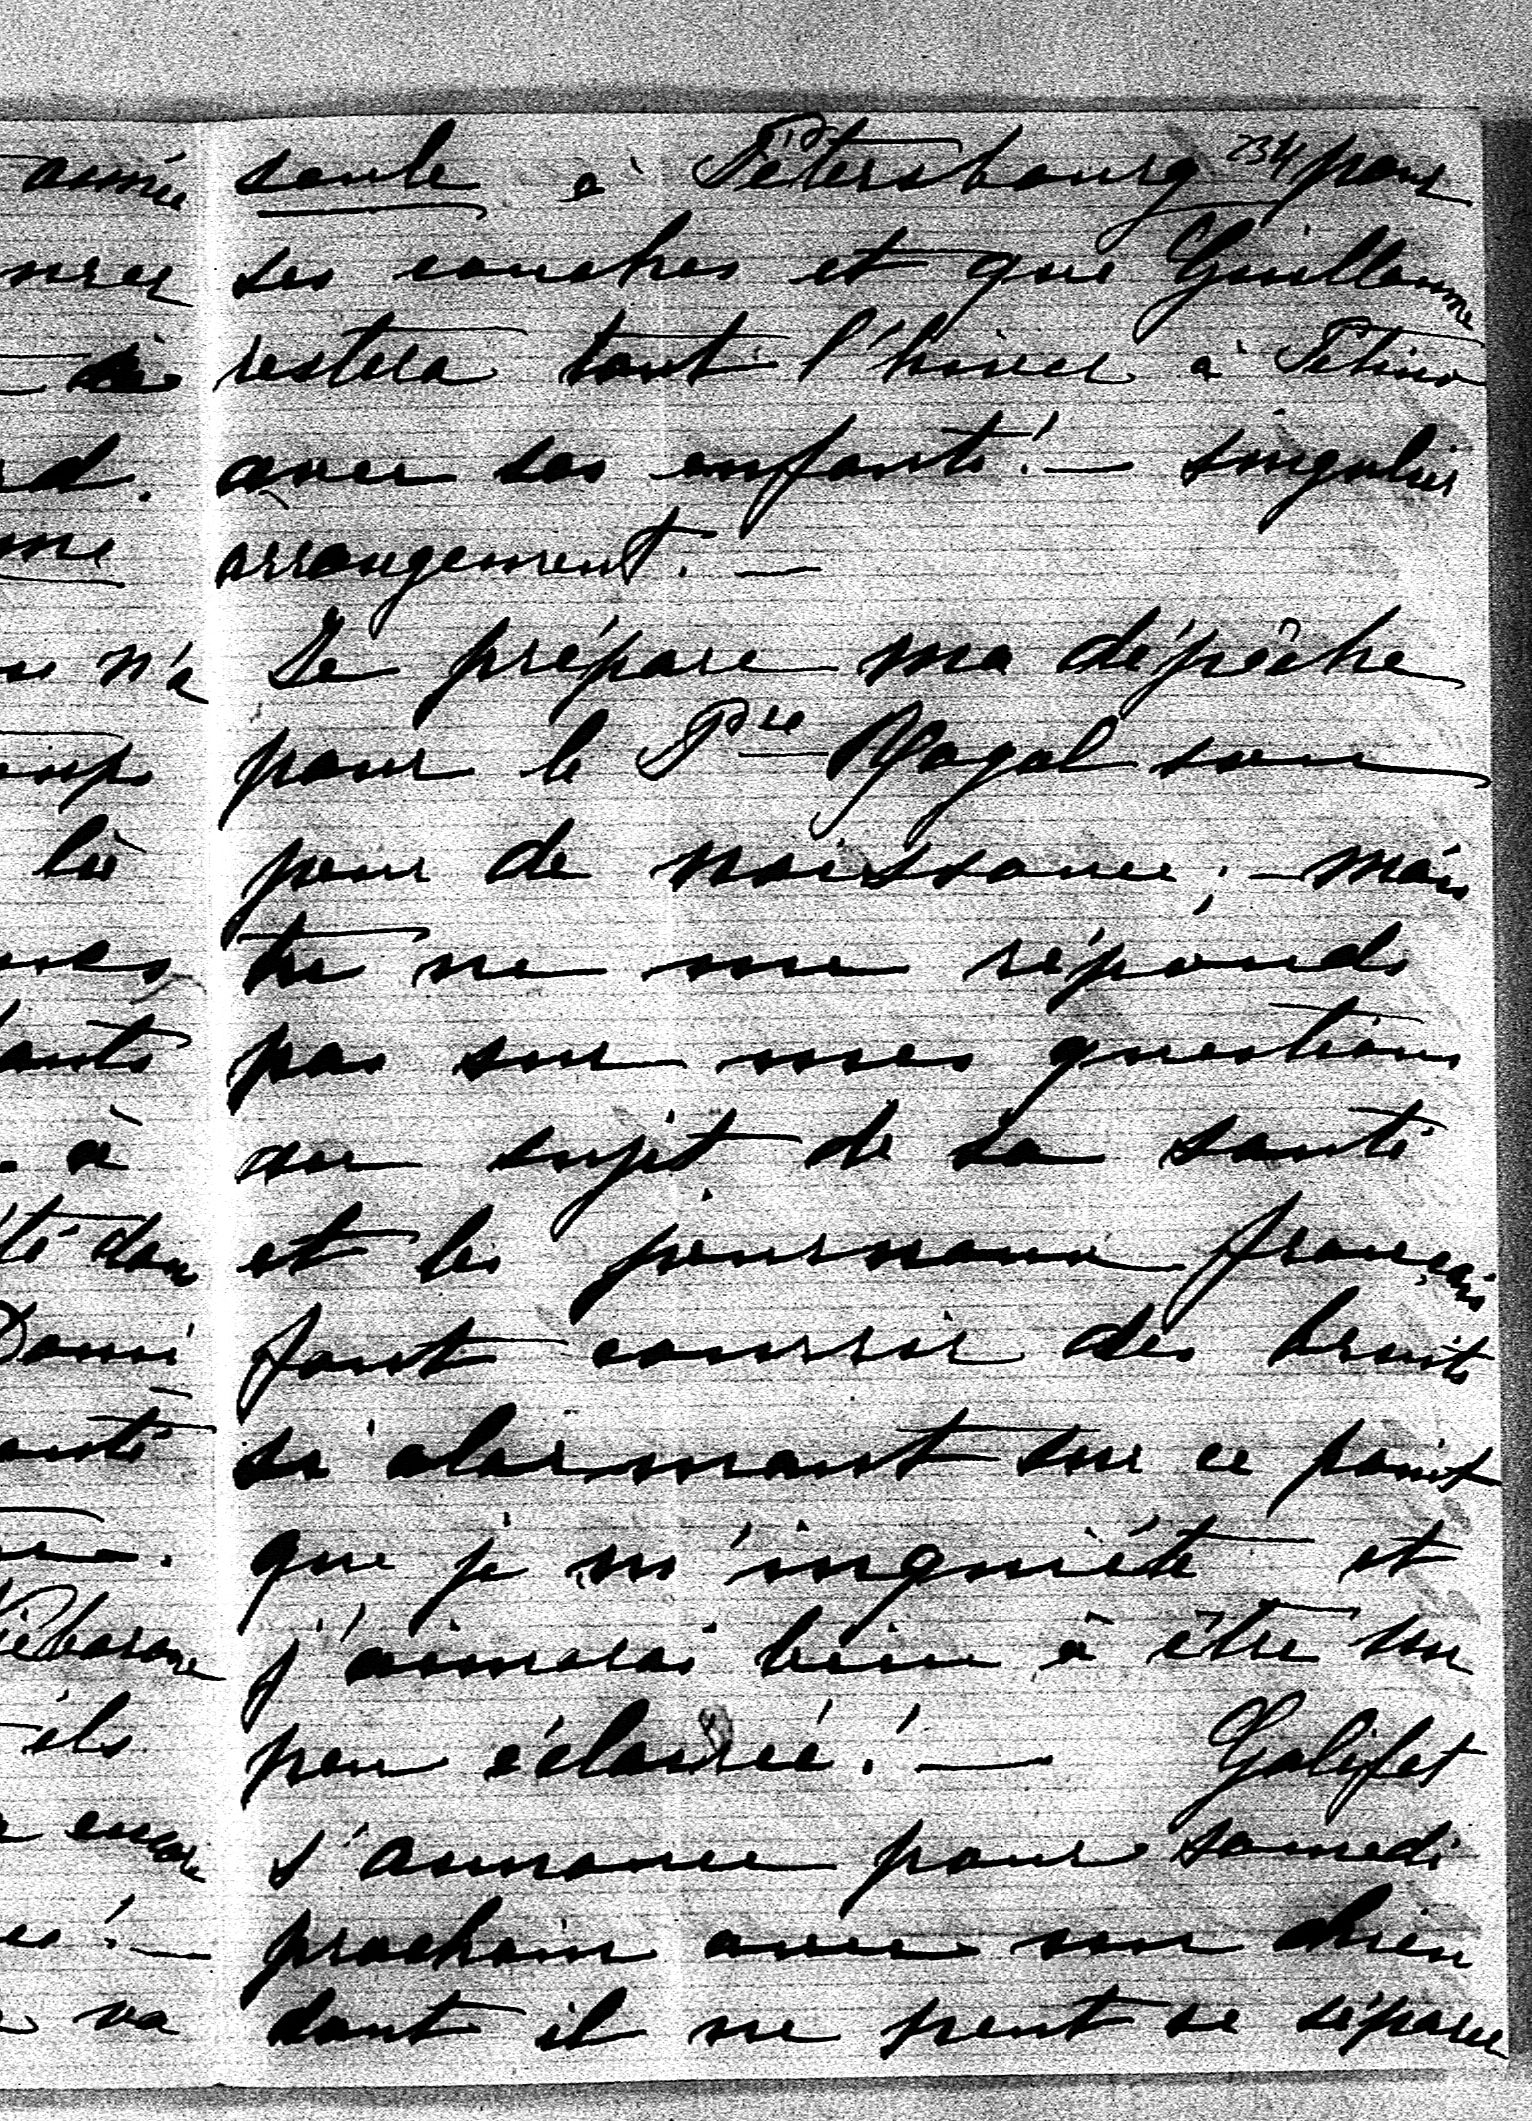 seule à Pétersbourg 234 pour
ses couches et que Guillaume
restera tout l'hiver à
avec ses enfants! — singulier
arrangement. —
Je prépare ma dépêche
pour le Pce Royal son
jour de naissance; — mais
tu ne me réponds
pas sur mes questions
au sujet de sa santé
et les journaux français
font courrir des bruits
si alarmant sur ce point
que je m'inquiète et
j'aimerai bien à être un
peu éclairée! — Galifet
s'annonce pour samedi
prochain avec son chien
dont il ne peut se séparer